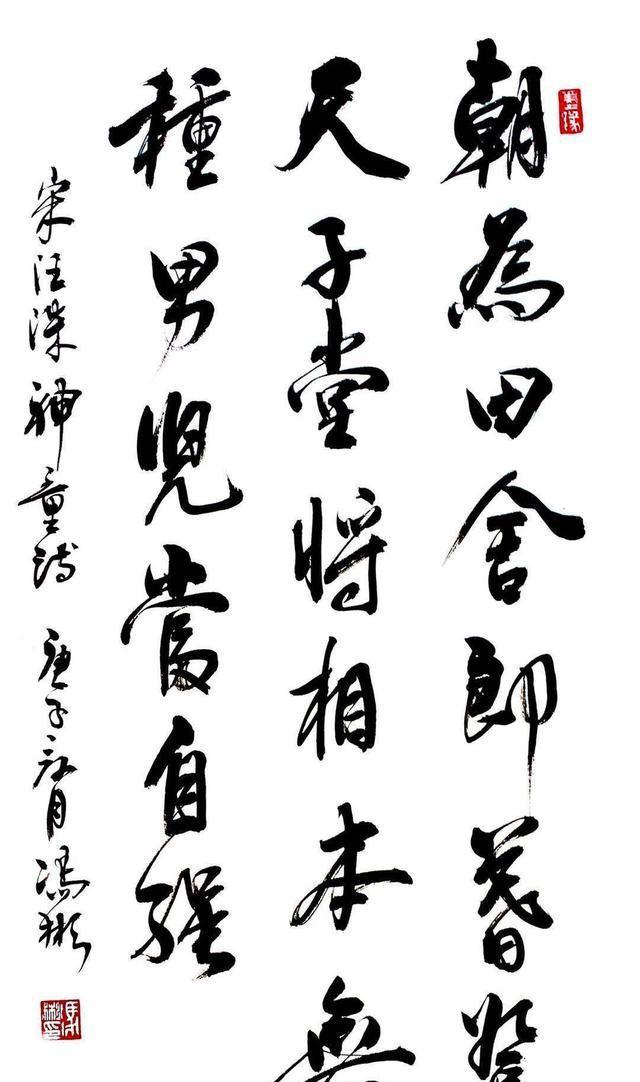 朝為田舍郎暮登
天子堂將相本無
種男兒當自強
宋汪洙神童詩 庚子月馮彬